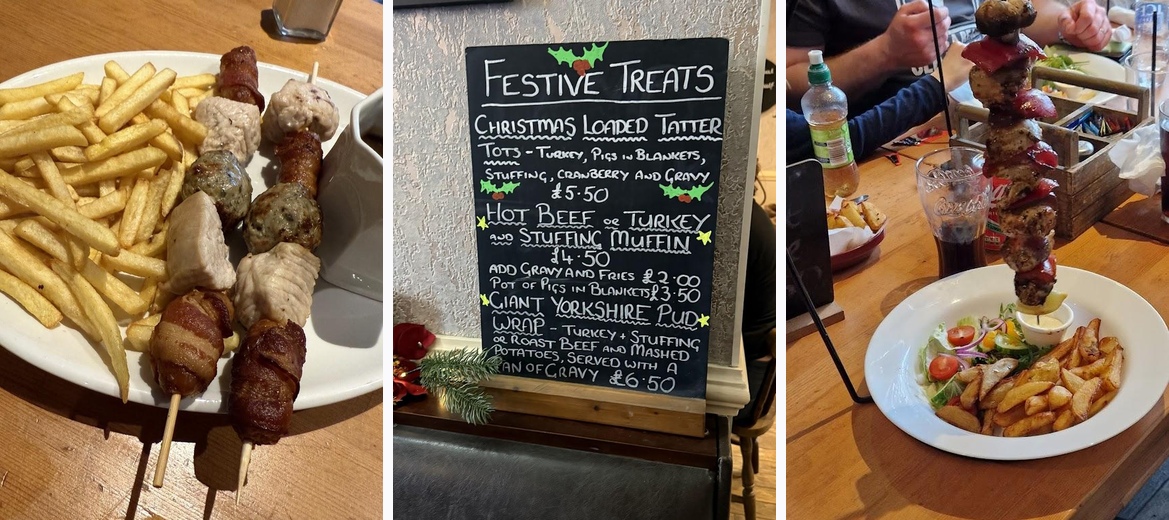 FESTIVE TREATS
CHRISTMAS LOADED TATTER
TOTS - TURKEY, PIGS IN BLANKETS,
STUFFING, CRANBERRY AND GRAVY
£5.50
HOT BEEF OR TURKEY
AND STUFFING MUFFIN
£4.50
ADD GRAVY AND FRIES £2.00
POT OF PIGS IN BLANKETS £3.50
GIANT YORKSHIRE PUD
WRAP - TURKEY + STUFFING
OR ROAST BEEF AND MASHED
POTATOES, SERVED WITH A
OF GRAVY £6.50